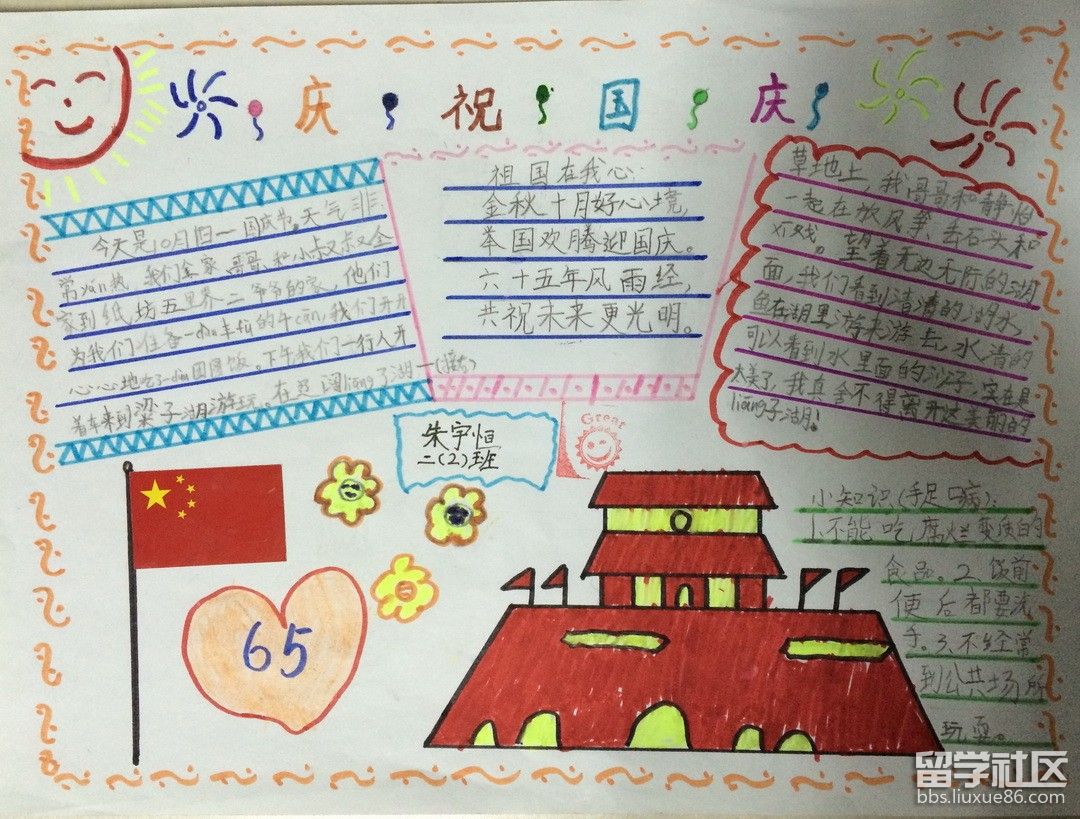 庆祝国庆
今天是10月1日一国庆节。天气非
常yán热 我们全家 哥哥和小叔叔全
家到纸坊五里界二爷爷的家,他们
为我们准备
心心地吃了一dùn团圆饭。下午我们一行人开
着车来到梁子湖游玩。在
祖国在我心:
金秋十月好心境,
举国欢腾迎国庆。
六十五年风雨经,
共祝未来更光明。
草地上,我哥哥和静怡
一起在放风筝,丢石头和
望着无边无际的湖
面,我们看到清清的湖水,
鱼在湖里游来游去,水清的
可以看到水里面的沙子,实在是
太美了,我真舍不得离开这美丽的
liáng子湖!
Great
朱宇恒
二(2)班
65
小知识(手足口病):
1.不能吃腐烂变质的
食品。2.饭前
便后都要洗
手.3.不经常
到公共场所
玩耍。
留学社区
bbs.liuxue86.com